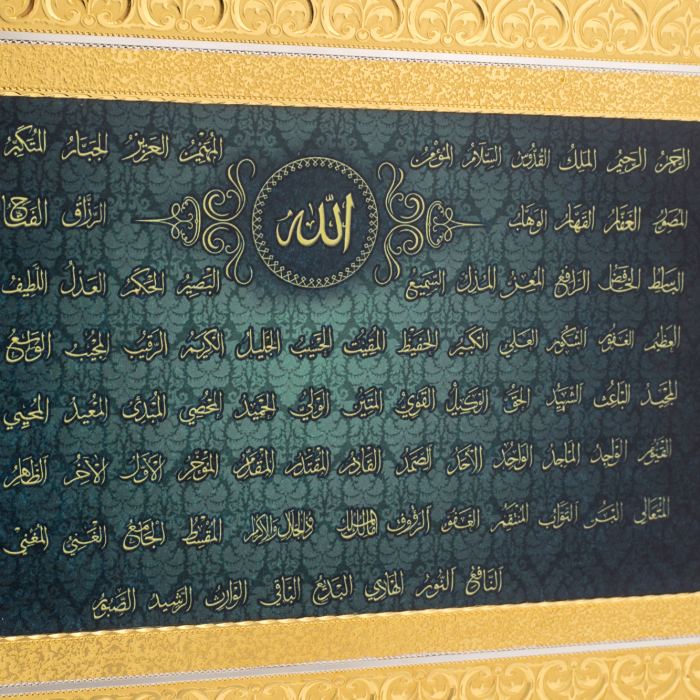 الرحمن الرحيم الملك القدوس السلام المؤمن المهيمن العزيز الجبار المتكبر
الله
المصور الغفار القهار الوهاب الرزاق الفتاح
الباسط الخافض الرافع المعز المذل السميع البصير الحكم العدل اللطيف
العظيم الغفور الشكور العلي الكبير الحفيظ المقيت الحسيب الجليل الكريم الرقيب المجيب الواسع
المجيد الباعث الشهيد الحق الوكيل القوي المتين الولي الحميد المحصي المبدئ المعيد المحيي
القيوم الواجد الماجد الواحد الأحد الصمد القادر المقتدر المقدم المؤخر الأول الآخر الظاهر
المتعالي البر التواب المنتقم العفو الرؤوف مالك الملك ذو الجلال والإكرام المقسط الجامع الغني المغني
النافع النور الهادي البديع الباقي الوارث الرشيد الصبور